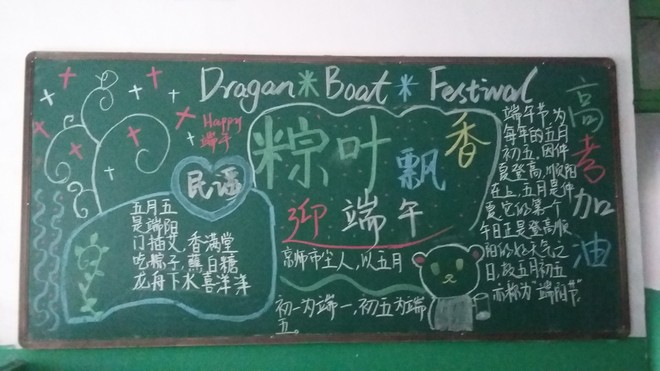 Dragan Boat Festival
Happy
端午
粽叶飘香
迎端午
民谣
五月五
是端阳
门插艾,香满堂
吃粽子,蘸白糖
龙舟下水喜洋洋
京师市尘人,以五月
初一为端一,初五为端
五。
端午节,为
每年的五月
初五,因仲
夏登高,顺阳
在上,五月是仲
夏,它的第一个
午日正是登高顺
阳的好天气之
日,故五月初五
亦称为“端阳节”
高考加油